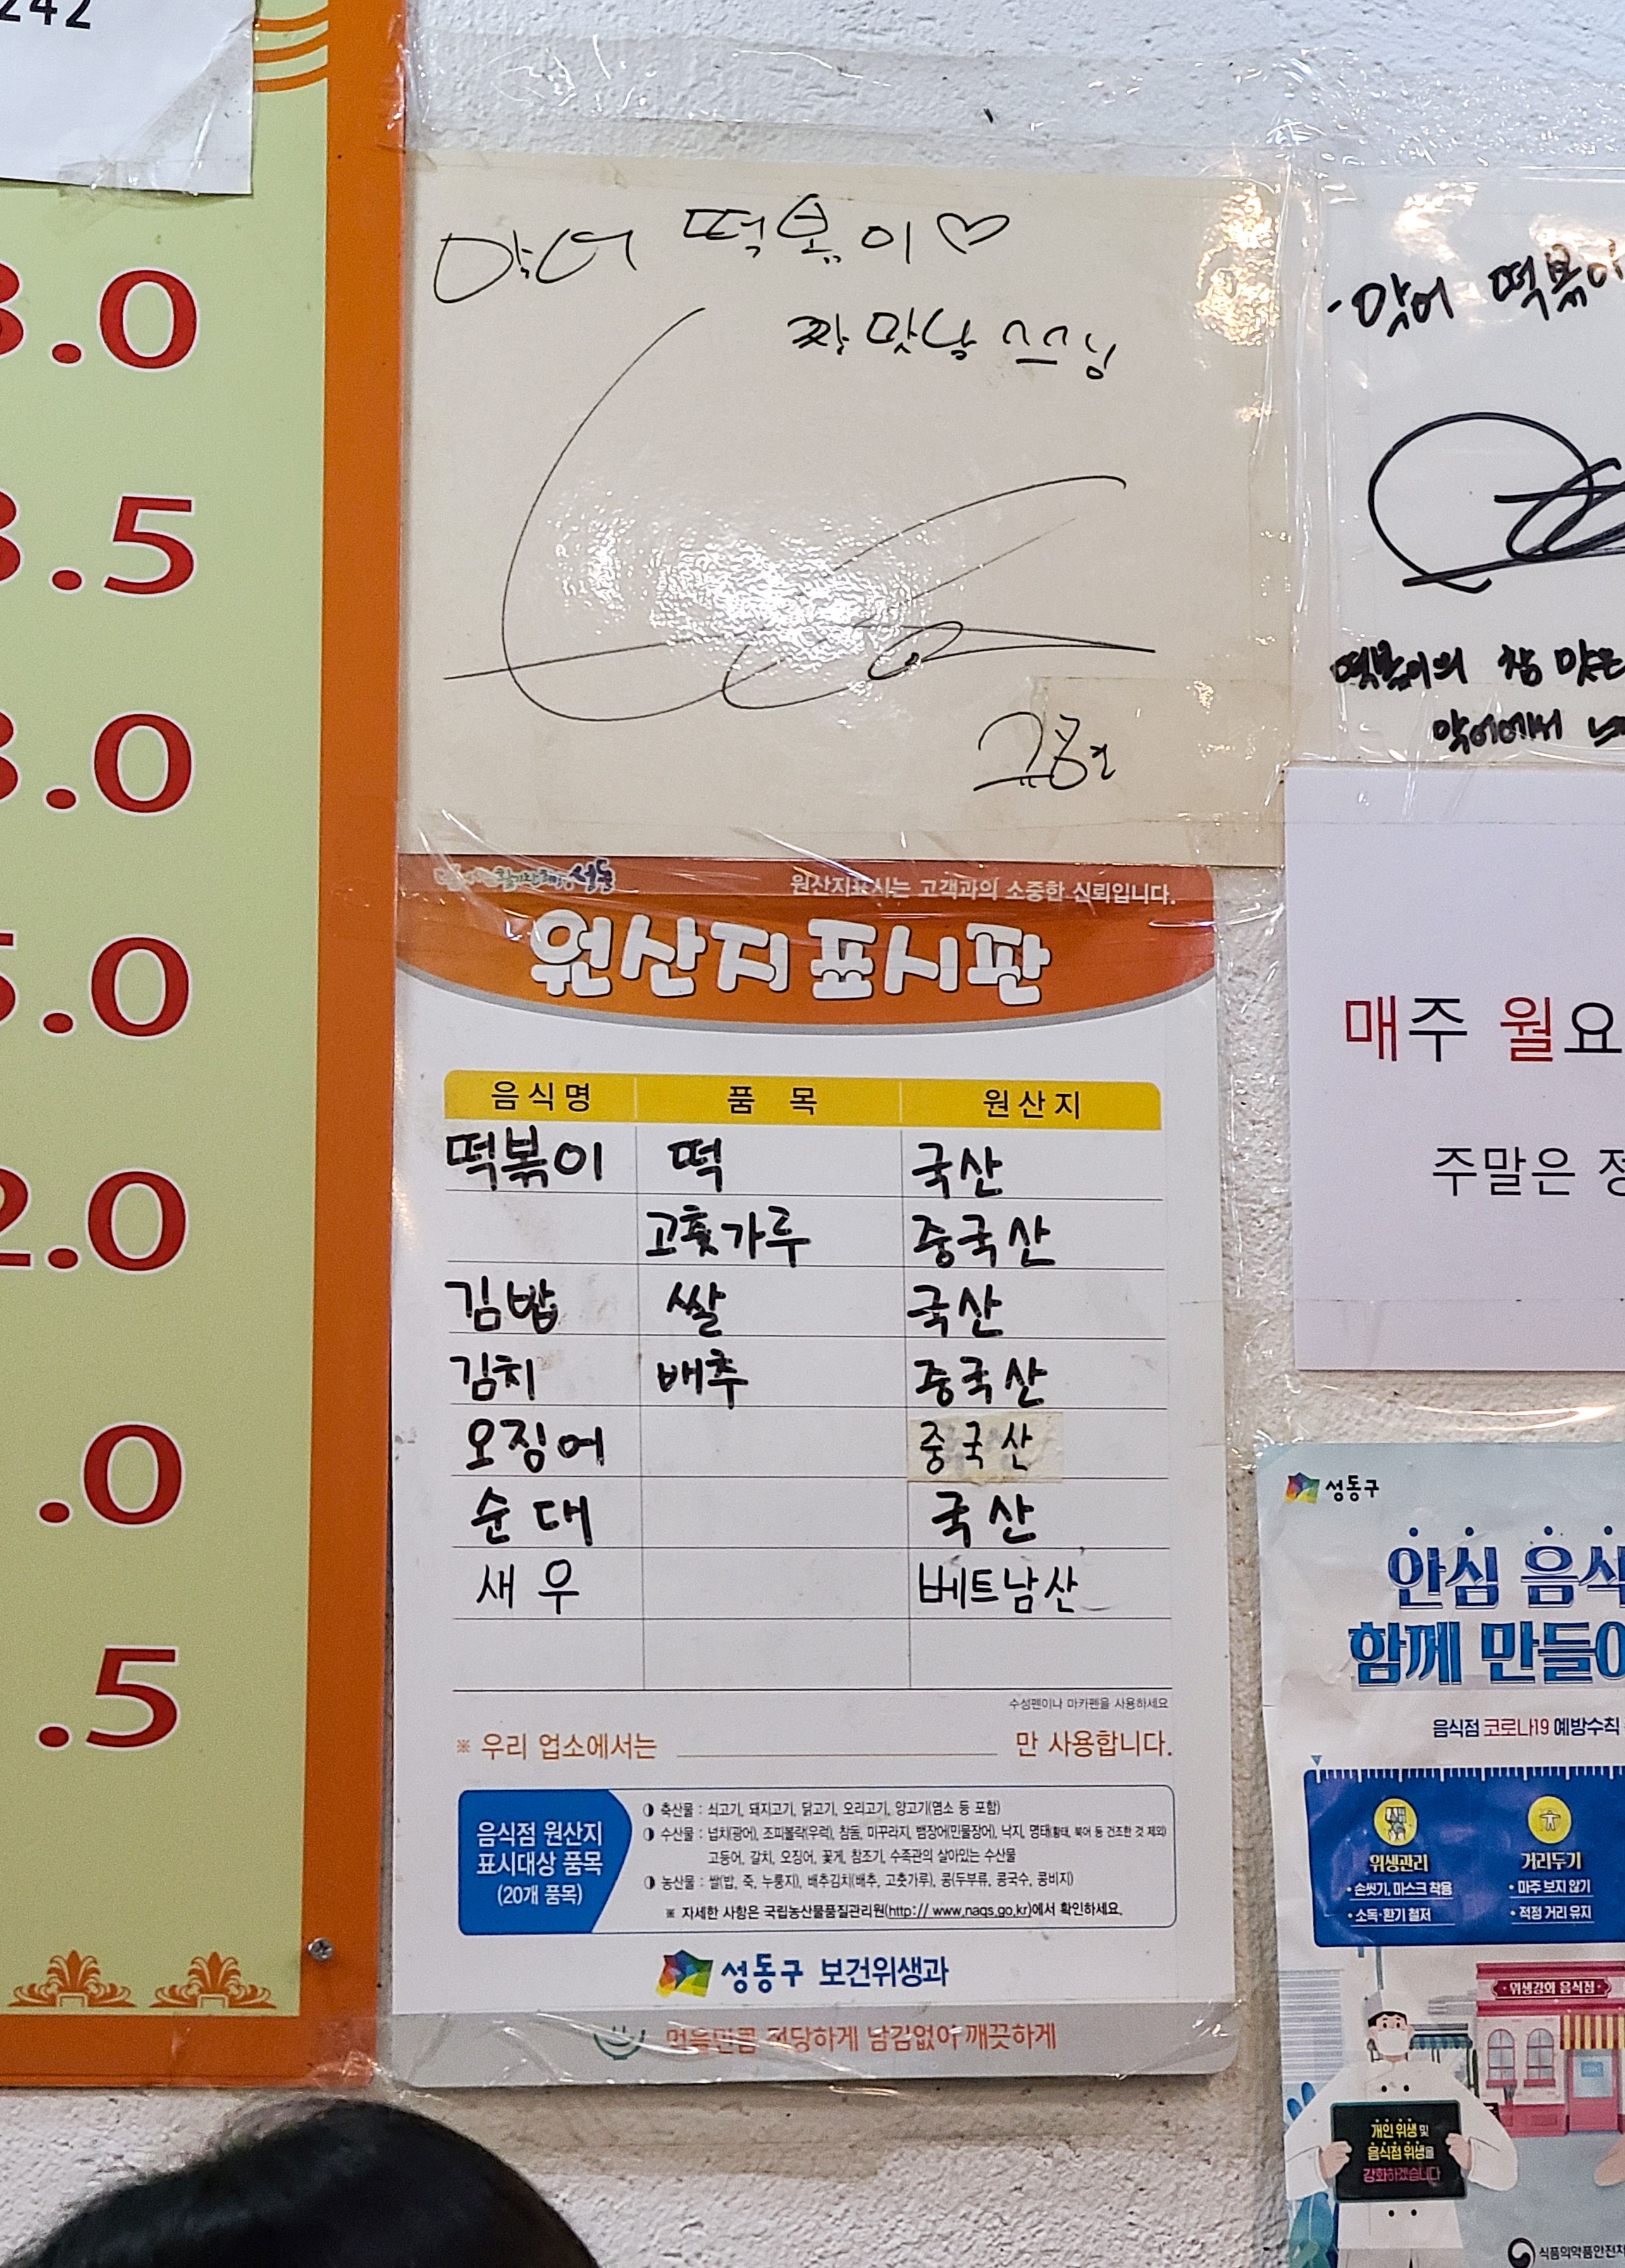 242
.0
.5
.0
5.0
2.0
.0
.5
악어 떡볶이♡
짱 맛남
악어 떡볶이
떡볶이의 참 맛은
악어에서
원산지표시는 고객과의 소중한 신뢰입니다.
원산지표시판
음식명 품 목 원산지
떡볶이 떡 국산
고춧가루 중국산
김밥 쌀 국산
김치 배추 중국산
오징어 중국산
순대 국산
새우 베트남산
수성펜이나 마카펜을 사용하세요
※ 우리 업소에서는 만 사용합니다.
음식점 원산지
표시대상 품목
(20개 품목)
축산물 : 쇠고기, 돼지고기, 닭고기, 오리고기, 양고기(염소 등 포함)
수산물 : 넙치(광어), 조피볼락(우럭), 참돔, 미꾸라지, 뱀장어(민물장어), 낙지, 명태(황태, 북어 등 건조한 것 제외)
고등어, 갈치, 오징어, 꽃게, 참조기, 수족관의 살아있는 수산물
농산물 : 쌀(밥, 죽, 누룽지), 배추김치(배추, 고춧가루), 콩(두부류, 콩국수, 콩비지)
※ 자세한 사항은 국립농산물품질관리원(http:// www.naqs.go.kr)에서 확인하세요.
성동구 보건위생과
먹을만큼 적당하게 남김없이 깨끗하게
매주 월요
주말은
성동구
안심 음식
함께 만들어
음식점 코로나19 예방수칙
위생관리
• 손씻기, 마스크 착용
• 소독·환기 철저
거리두기
• 마주 보지 않기
• 적정 거리 유지
위생강화 음식점
개인 위생 및
음식점 위생을
강화하겠습니다
식품의약품안전처